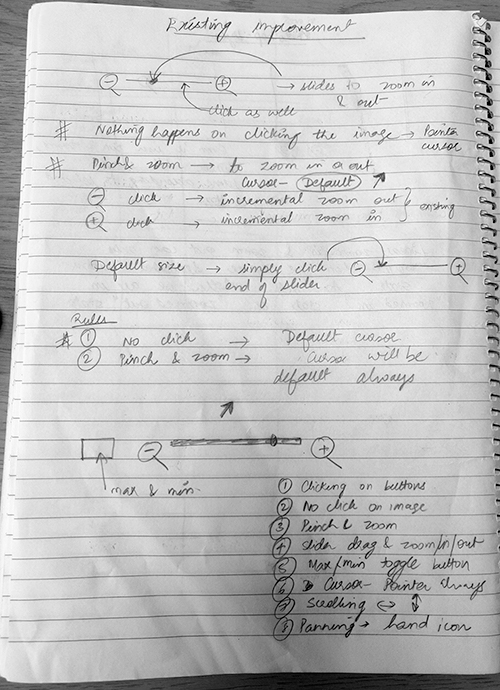 Existing improvement
→ slides to zoom in
& out
click as well
# Nothing happens on clicking the image → Pointer
cursor
# Pinch & zoom → to zoom in & out
Cursor - Default
click → incremental zoom out
click → incremental zoom in
existing
Default size → simply click
end of slider
Rules
# ① No click → Default cursor
② Pinch & zoom → Cursor will be
default always
max & min
① Clicking on buttons
② No click on image
③ Pinch & zoom
④ Slider drag & zoom/in/out
⑤ Max/min toggle button
⑥ Cursor - Pointer always
⑦ Scrolling ↔ ↕
⑧ Panning → hand icon